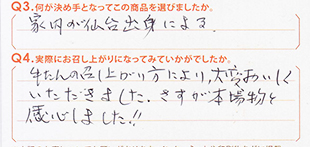 Q3.何が決め手となってこの商品を選びましたか。
家内が仙台出身による。
Q4.実際にお召し上がりになってみていかがでしたか。
牛たんの召し上がり方により、大変おいしく
いただきました。さすが本場物と
感心しました!!